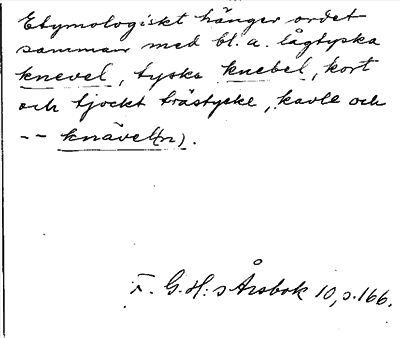 Etymologiskt hänger ordet
samman med bl. a. lågtyska
knevel, tyska knebel, kort
och tjockt trästycke, kavle och
-- knävel(n).
F. G. H:s Årsbok 10, s. 166.